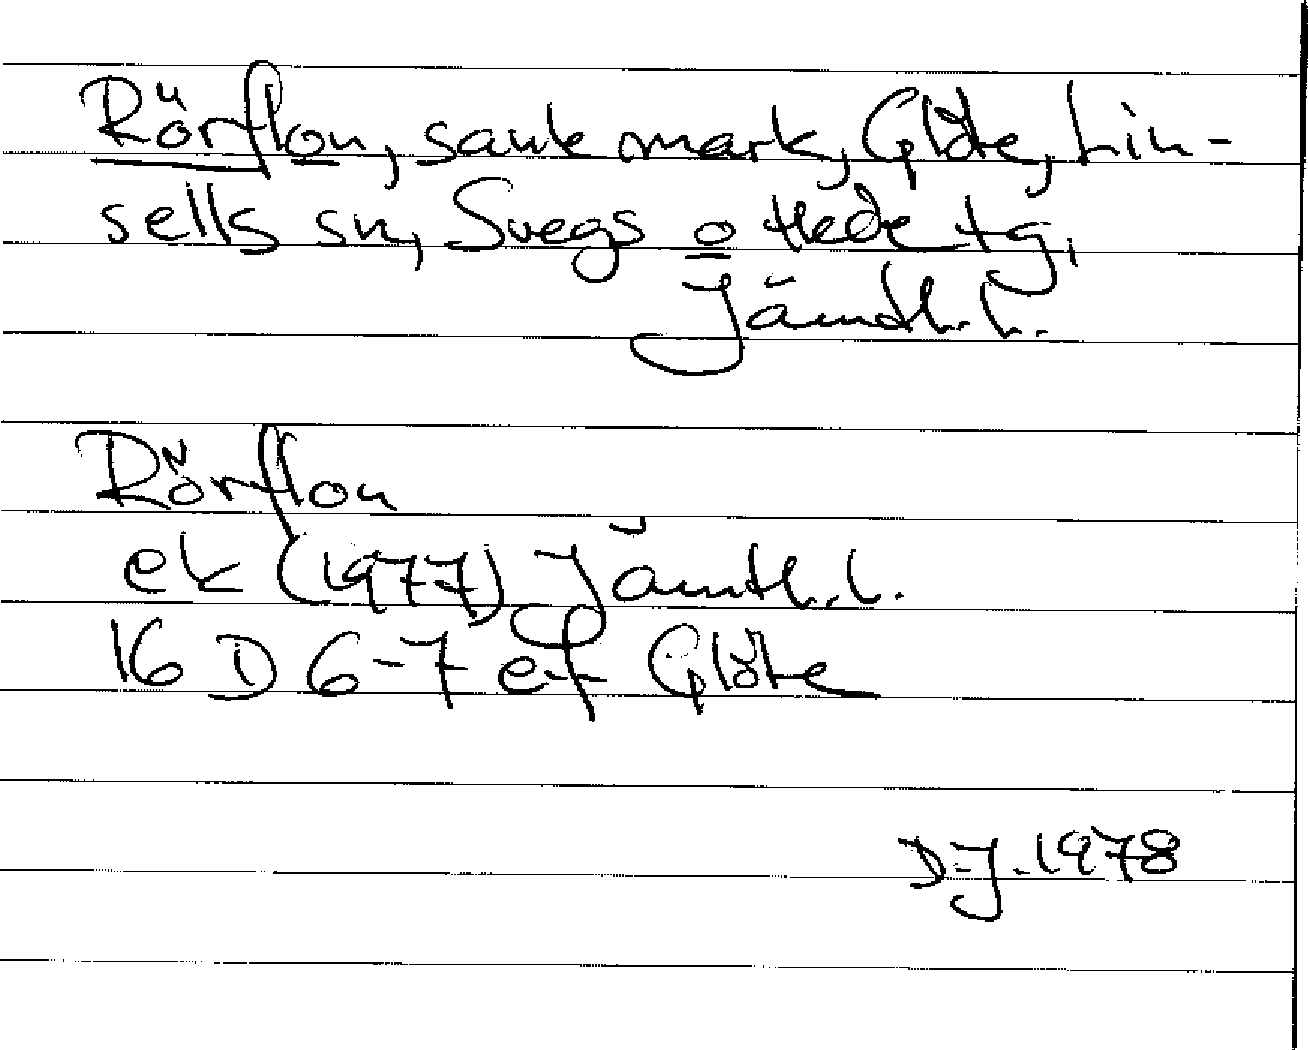 Rörflon, sank mark, Glöte, Lin-
sells sn, Svegs o Hede tg,
Jämtl. l.
Rörflon
ek (1977) Jämtl. l.
16 D 6-7 e-f Glöte
D-J. 1978